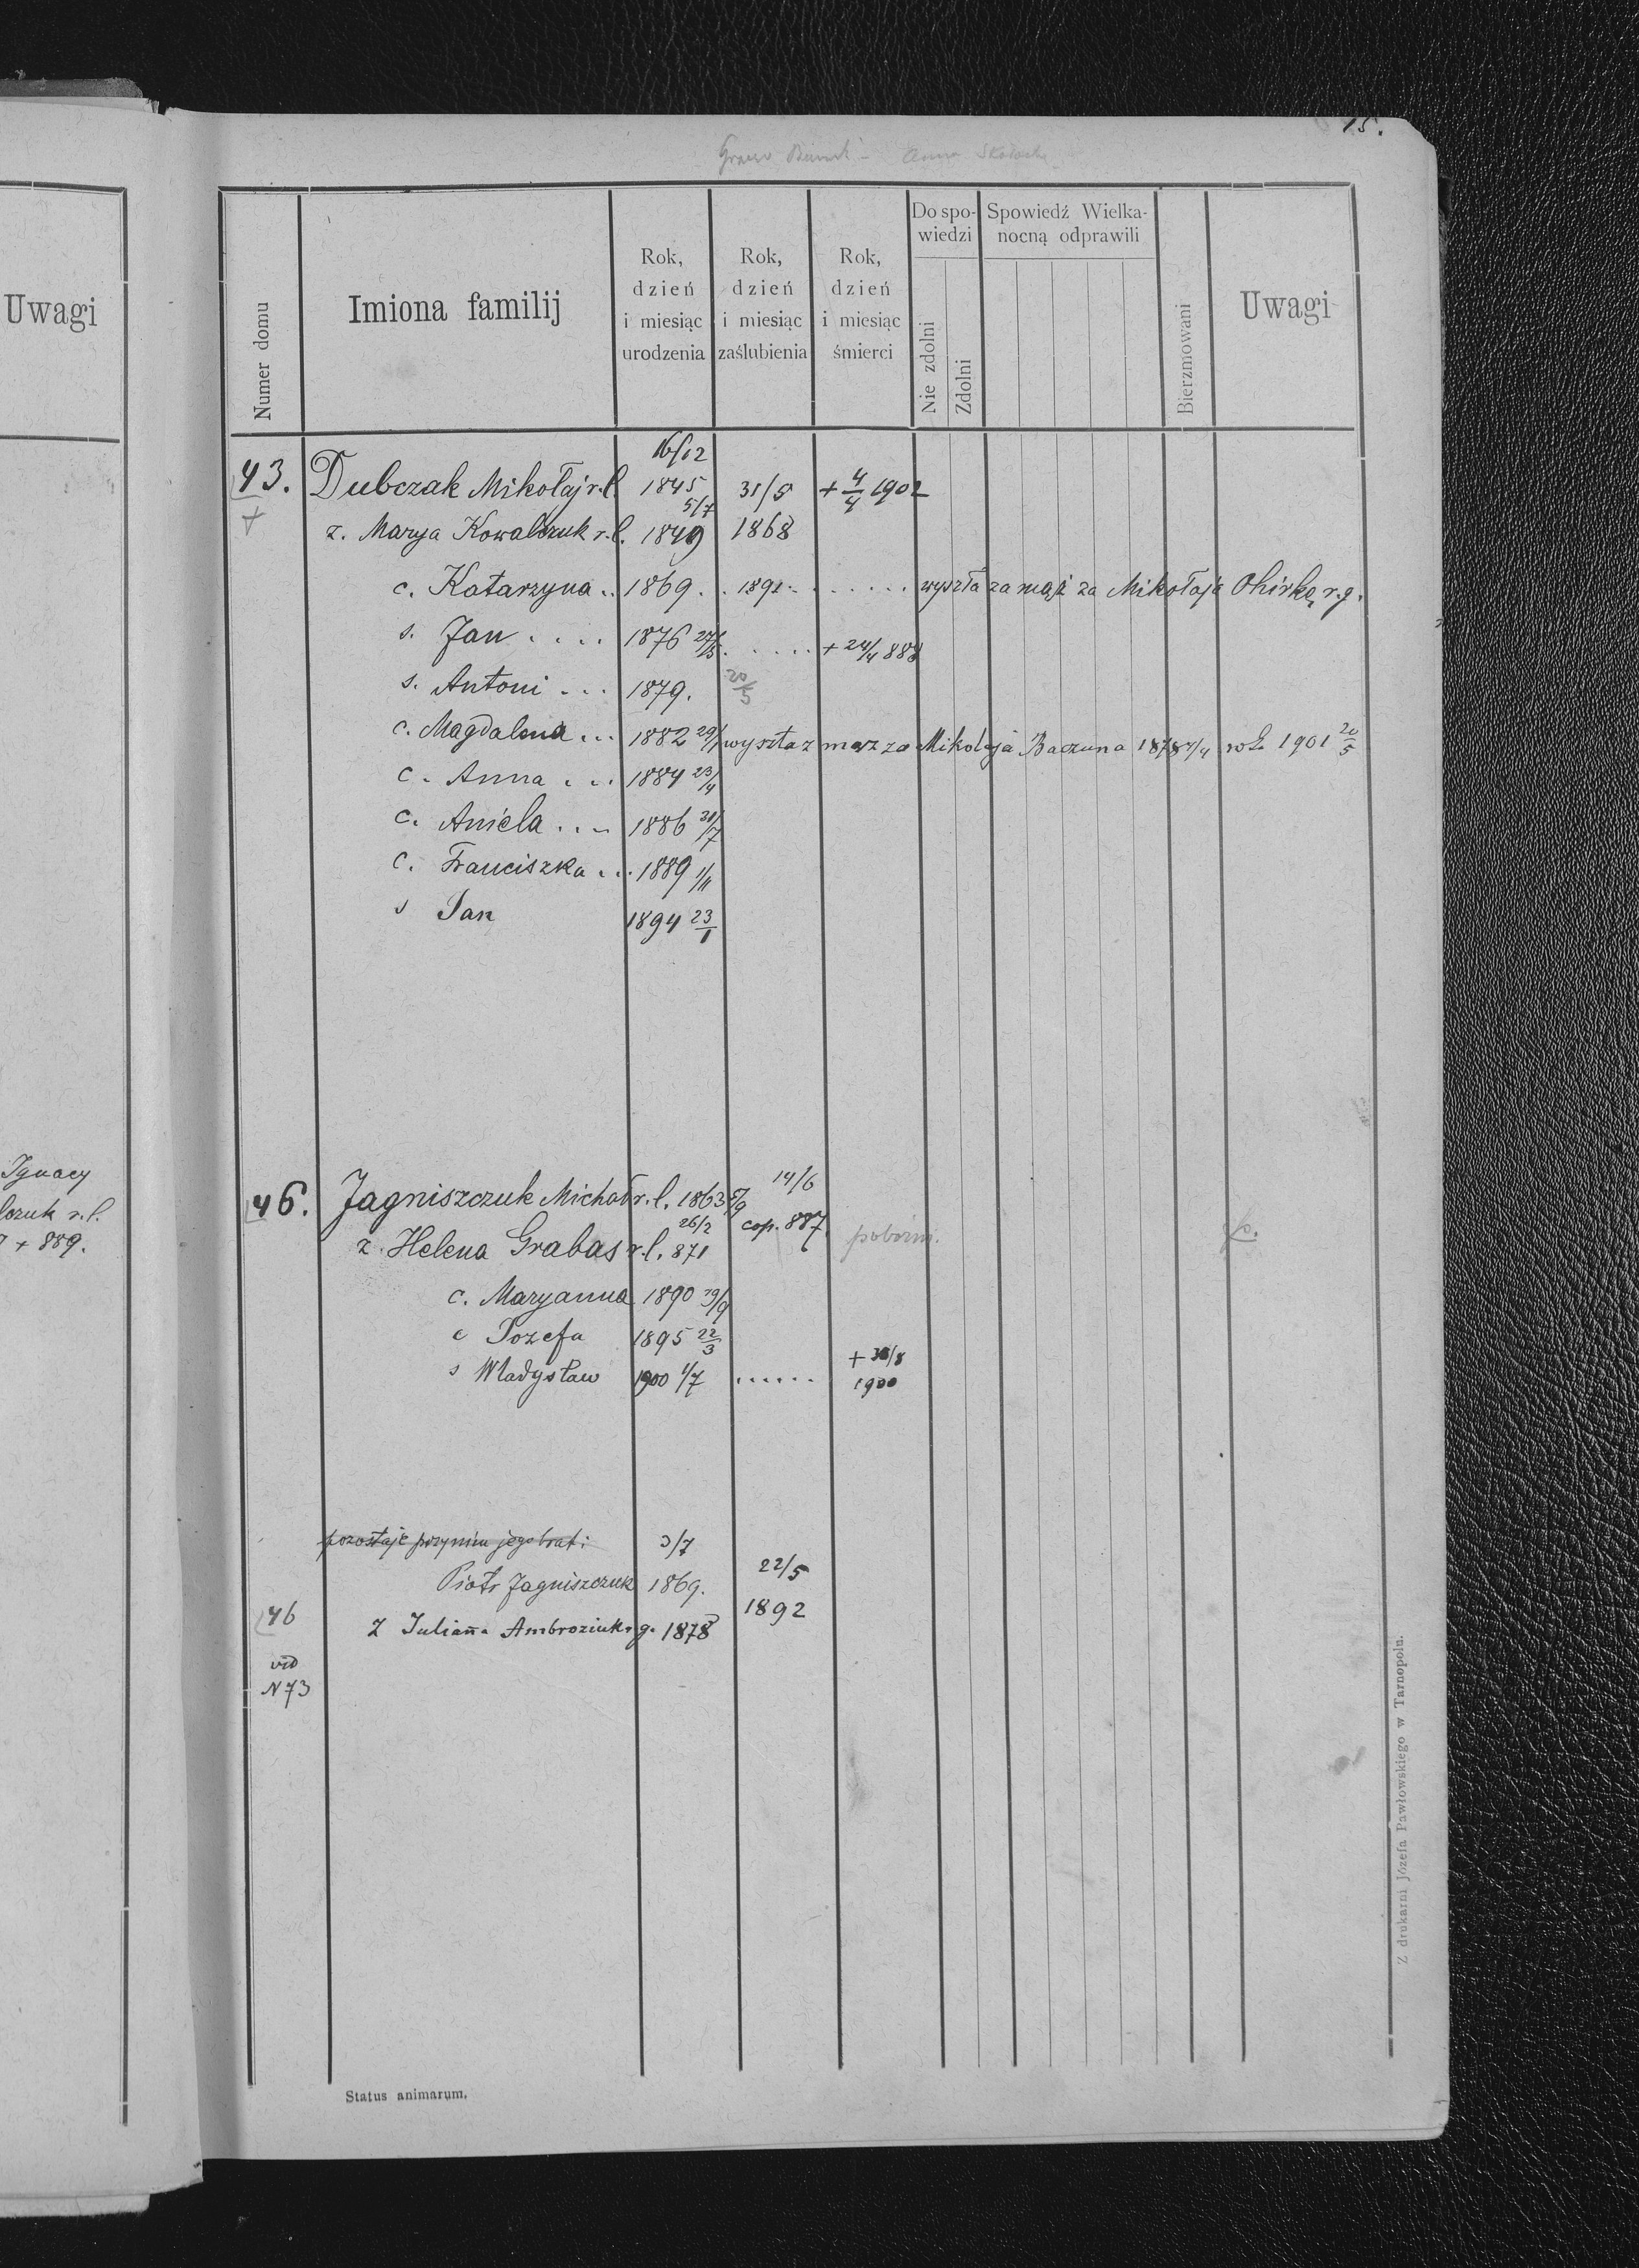 15.
Uwagi
Ignacy
r.l.
+ 889.
Numer domu
Imiona familij
Rok, dzień i miesiąc urodzenia
Rok, dzień i miesiąc zaślubienia
Rok, dzień i miesiąc śmierci
Do spo-
wiedzi
Nie zdolni
Zdolni
Spowiedź Wielka-
nocną odprawili
Bierzmowani
Uwagi
16/12
43. Dubczak Mikołaj r.l. 1845 31/5 + 4/4 1902
5/7
+ z. Marya Kowalczuk r.l. 1849 1868
c. Katarzyna .. 1869. . . 1892 . . . . . . . wyszła za mąż za Mikołaja Ohirkę r.g.
s. Jan . . . . 1876 . . . . . + 24/4 888
s. Antoni . . . 1879. 20/5
c. Magdalena ... 1882 29/1 wyszła z maz za Mikołaja Baczuna 1878 1901 20/5
c. Anna . . . 1884 23/4
c. Aniela . . . 1886 31/7
c. Franciszka . . . 1889 1/11
s Jan 1894 23/1
14/6
46. Jagniszczuk Michał r.l. 1863 cop. 887.
26/2
z. Helena Grabas r.l. 871
c. Maryanna 1890 29/9
c Jozefa 1895 22/3
s Władysław 1900 1/7 ...... + 1900
pozostaje przy nim jego brat: 3/7
Piotr Jagniszczuk 1869. 22/5
46 1892
z Julianna Ambroziuk r.g. 1878
vid
N 73
Status animarum.
Z drukarni Józefa Pawłowskiego w Tarnopolu.